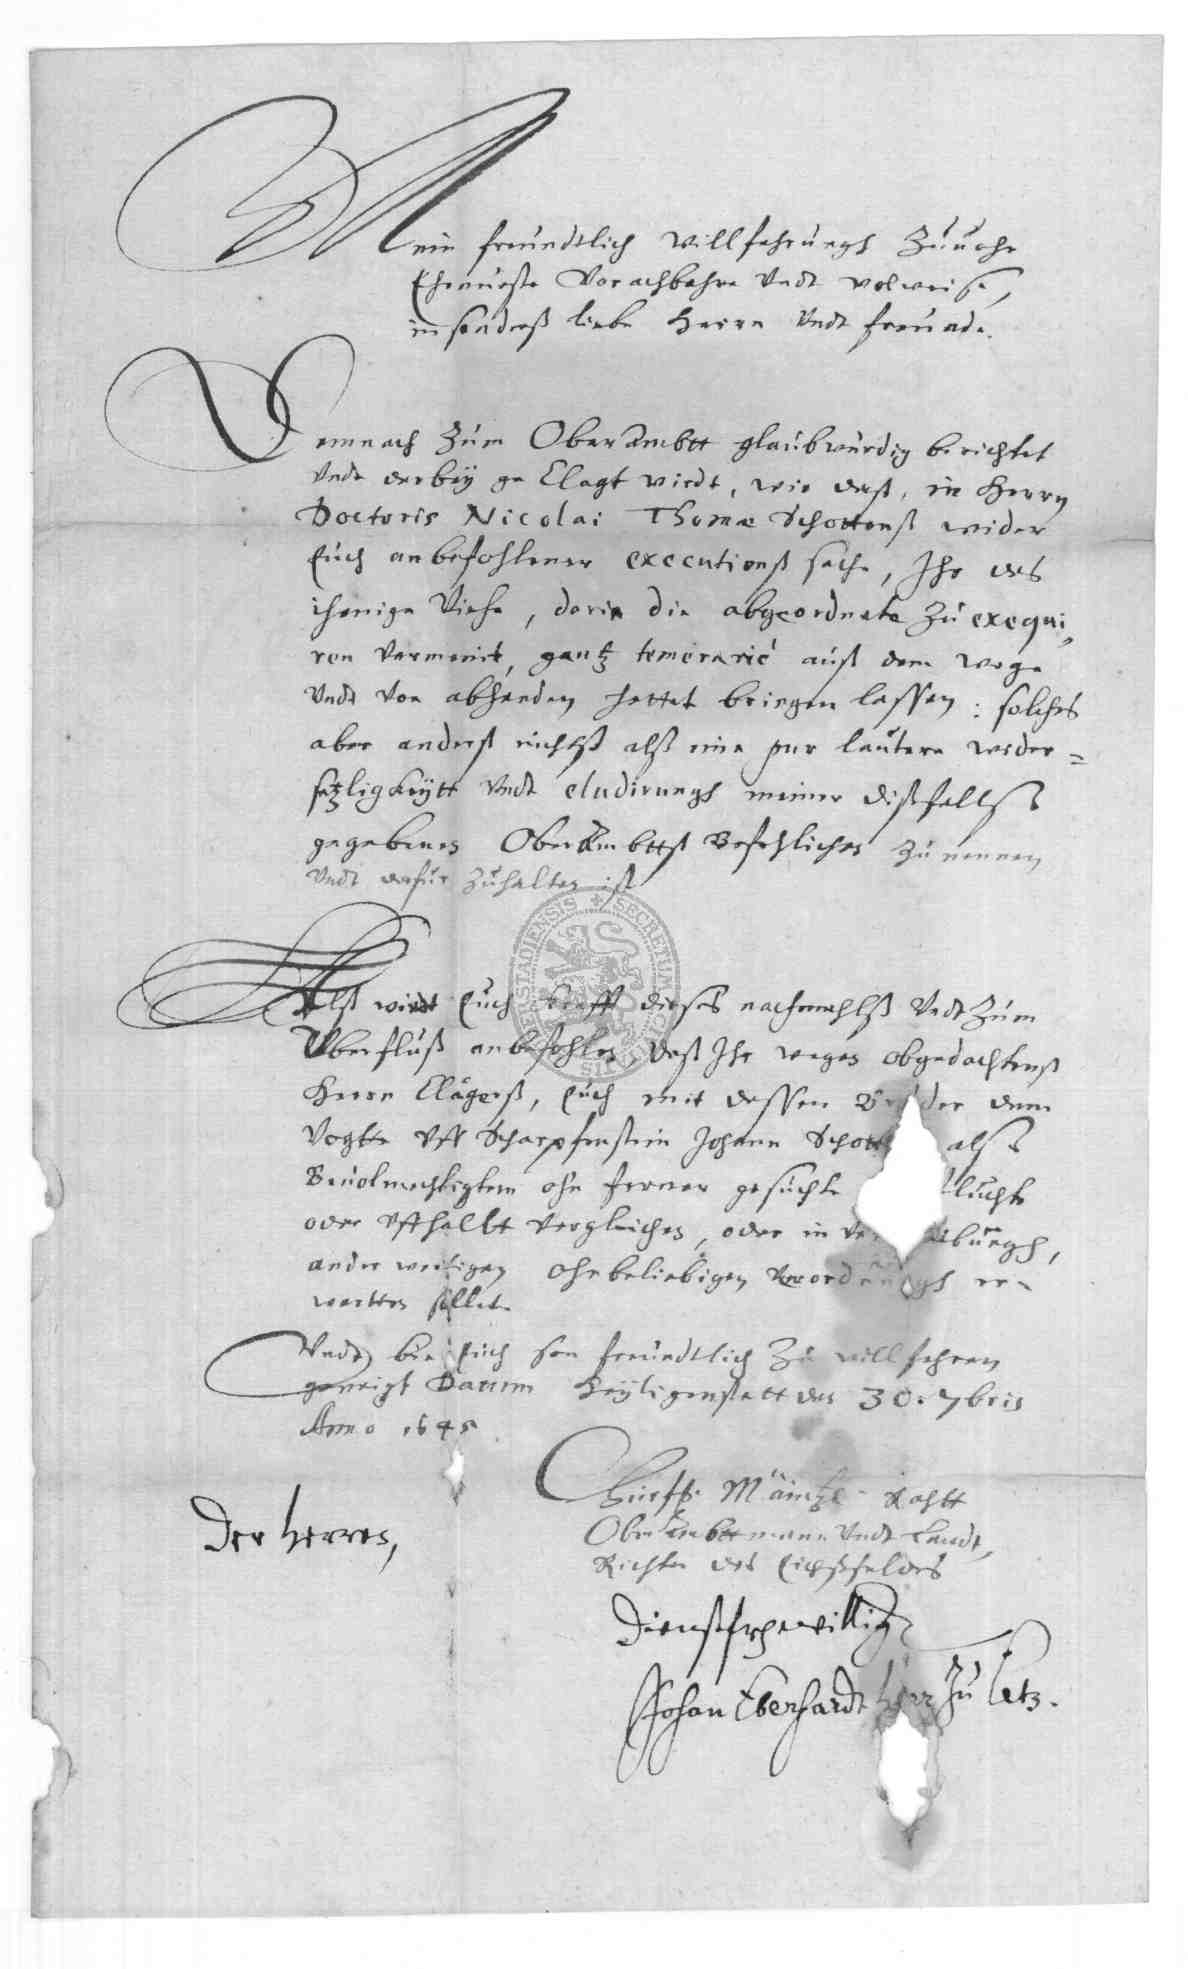 Mein freundtlich willfahrungh Zuuohr
Ehrnueste Vorachtbahre Vndt wolweise,
insonderß liebe Herrn Vndt freunde.
Demnach Zum OberAmbtt glaubwürdig berichtet
Vndt darbey geklagt wirdt, wie daß, in Herrn
Doctoris Nicolai Thomæ Schottenß wider
Euch anbefohlener executionß sache, Ihr das
ihenige Viehe, darin die abgeordnete Zu exequi,
ren Vermeint, gantz temerariè auß dem wege
Vndt Von abhanden hettet bringen lassen: solches
aber anderß nichtß alß eine pur lautere weder=
setzligkeytt Vndt eludirungh meiner dißfallß
gegebenes OberAmbttß Befehliches Zu nennen
Vndt dafür Zuhalten ist
Alß wirdt Euch krafft dieses nachmahlß Vndt Zum
Vberfluß anbefohlen, daß Ihr wegen obgedachtenß
Herrn Klägerß, Euch mit dessen Bruder dem
Vogtte Vff Scharpfenstein Johann Schotten alß
Beuolmechtigtem ohn ferner gesuchte luchte
oder Vffhallt Vergleichen, oder in bungh,
anderweitigen ohnbeliebigen Verordnungh er-
wartten sollet.
Vndt bin Euch son freundtlich Zu willfahren
geneigt Datum Heyligenstatt den 30. 7bris
Anno 1645
Churfl. Mäintz. Rahtt
OberAmbttmann Vndt Landt,
Richter des Eichßfeldes
Der Herren,
Dienstfreywilliger
Johan Eberhardt Herr Zu Cletz.
SECRETUM CIVITATIS DUDERSTADIENSIS